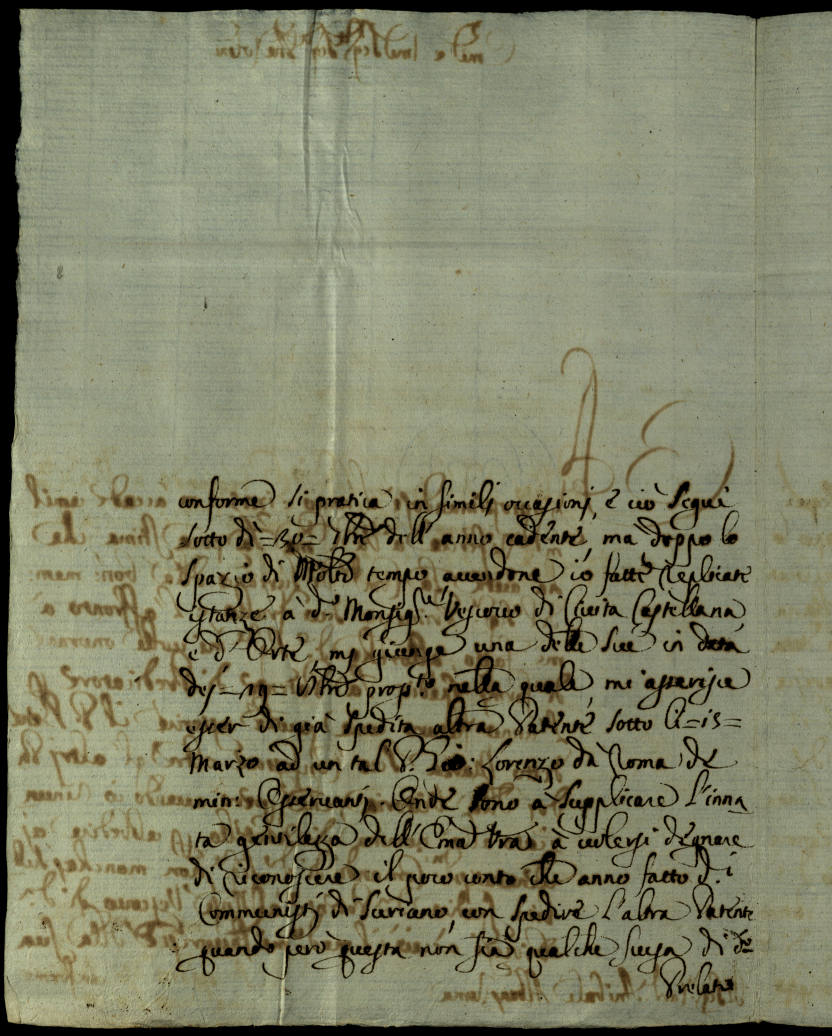 conforme si pratica in simili occasioni, e ciò seguì
sotto dì =30= 7bre dell'anno cadente, ma doppo lo
spazio di molto tempo avendone io fatte replicate
istanze à do Monsigr Vescovo di Civita Castellana,
e d'Orte, mi giunge una delle sue in data
dei =19= propo nella quale mi asserisce
esser di già spedita altra Patente sotto li =13=
Marzo ad un tal P. Gio: Lorenzo da Roma de
min: Osservanti. Onde sono à supplicare l'inna
ta gentilezza dell'Ema Vra à volersi degnare
di riconoscere il poco conto che anno fatto d. i
Communisti di Soriano, con spedire l'altra Patente
quando però questa non sia qualche scusa di do
Prelato